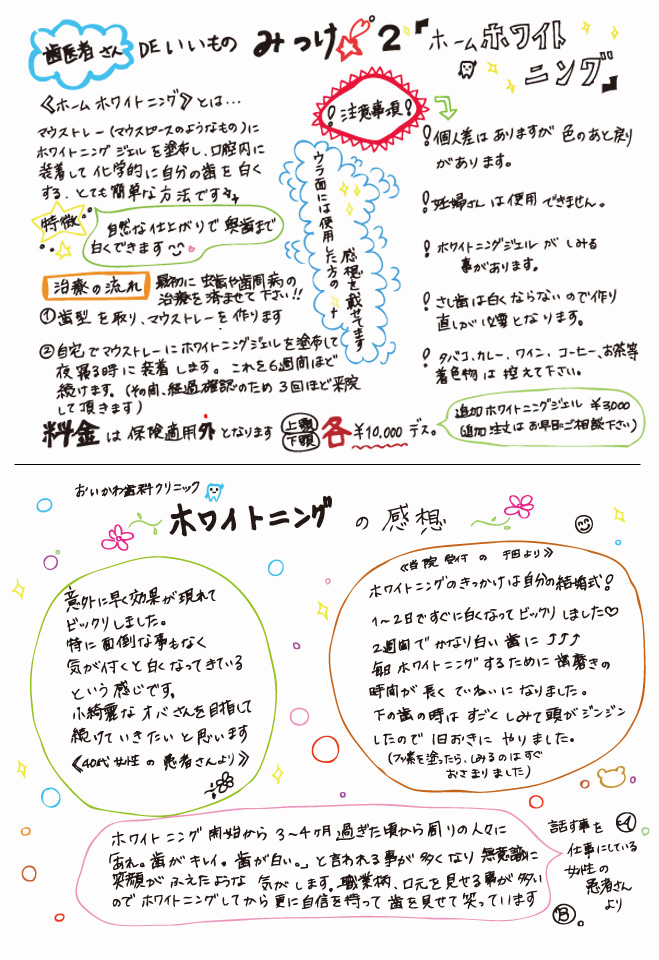 歯医者さん DE いいもの みつけ 2 『ホームホワイト
ニング』
《ホームホワイトニング》とは…
マウストレー(マウスピースのようなもの)に
ホワイトニングジェルを塗布し、口腔内に
装着して化学的に自分の歯を白く
する、とても簡単な方法です
特徴
自然な仕上がりで奥歯まで
白くできます
治療の流れ
最初に虫歯や歯周病の
治療を済ませて下さい!!
①歯型を取り、マウストレーを作ります
②自宅でマウストレーにホワイトニングジェルを塗布して
夜寝る時に装着します。これを6週間ほど
続けます。(その間、経過確認のため3回ほど来院
して頂きます)
料金は保険適用外となります
上顎
下顎
各¥10,000デス。
追加ホワイトニングジェル ¥3,000
(追加注文はお早目にご相談下さい)
ウラ面には使用した方の
感想を載せてます
!注意事項!
!個人差はありますが色のあと戻り
があります。
!妊婦さんは使用できません。
!ホワイトニングジェルがしみる
事があります。
!さし歯は白くならないので作り
直しが必要となります。
!タバコ、カレー、ワイン、コーヒー、お茶等
着色物は控えて下さい。
おいかわ歯科クリニック
ホワイトニングの感想
意外に早く効果が現れて
ビックリしました。
特に面倒な事もなく
気が付くと白くなってきている
という感じです。
小綺麗なオバさんを目指して
続けていきたいと思います
《40代女性の患者さんより》
《当院受付の千田より》
ホワイトニングのきっかけは自分の結婚式!
1〜2日ですぐに白くなってビックリしました♡
2週間でかなり白い歯に↑↑↑
毎日ホワイトニングするために歯磨きの
時間が長くていねいになりました。
下の歯の時はすごくしみて頭がジンジン
したので1日おきにやりました。
(フッ素を塗ったら、しみるのはすぐ
おさまりました)
ホワイトニング開始から3〜4ヶ月過ぎた頃から周りの人々に
「あれ。歯がキレイ。歯が白い。」と言われる事が多くなり無意識に
笑顔がふえたような気がします。職業柄、口元を見せる事が多い
のでホワイトニングしてから更に自信を持って歯を見せて笑っています
話す事を
仕事にしている
女性の
患者さん
より